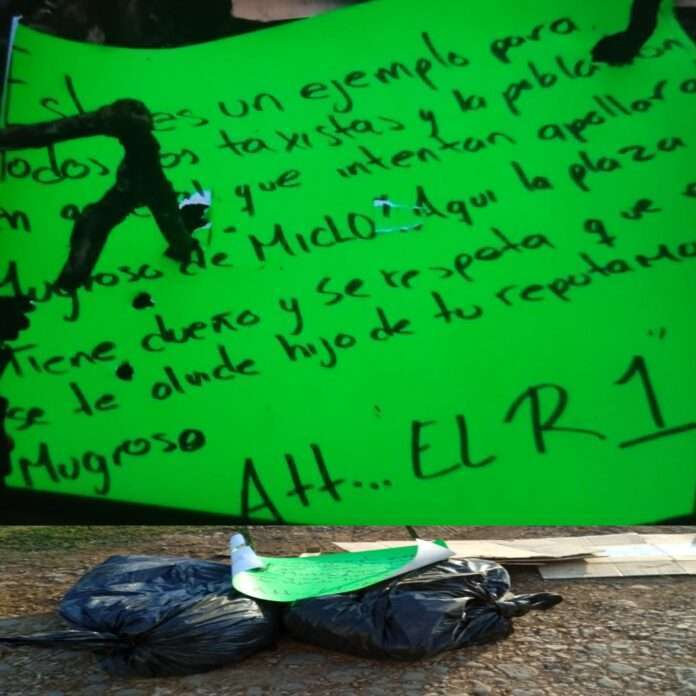 es un ejemplo para
Todos los taxistas y la
que intentan apollar
Mugroso de MICLO" Aqui la plaza
Tiene dueño y se respeta que
se te olvide hijo de tu reputama
Mugroso
Att... EL R1